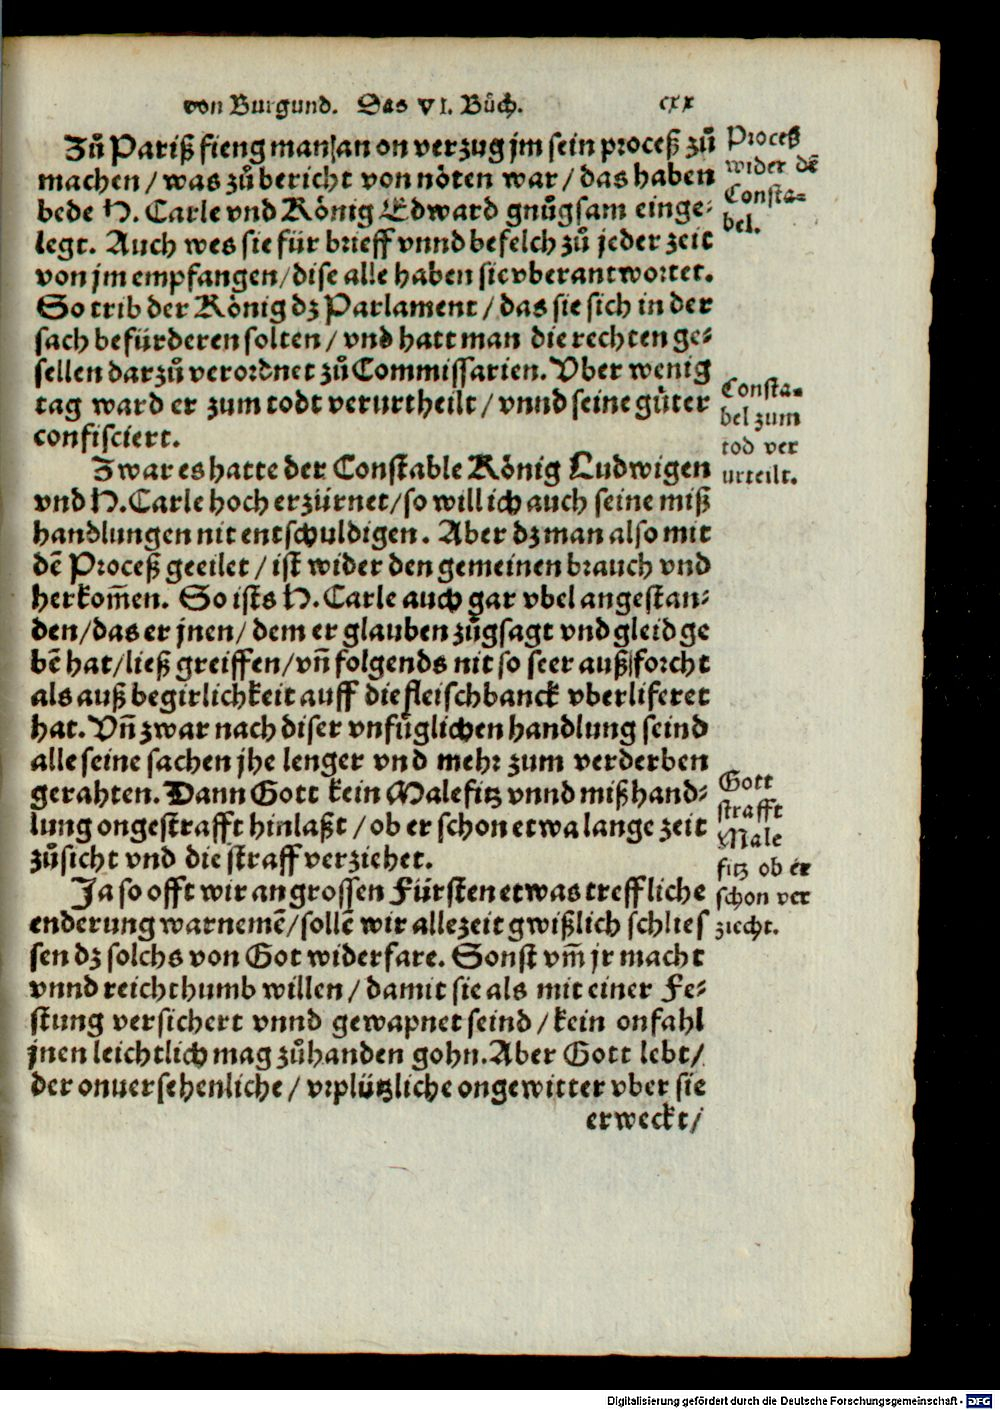 von Burgund. Das VI. Bůch. cxx
Zů Pariß fieng man an on verzug jm sein proceß zů
machen / was zů bericht von nöten war / das haben
bede H. Carle vnd König Edward gnůgsam einge⸗
legt. Auch wes sie für brieff vnnd befelch zů jeder zeit
von jm empfangen / dise alle haben sie vberantwortet.
So trib der König dz Parlament / das sie sich in der
sach befürderen solten / vnd hatt man die rechten ge⸗
sellen darzů verordnet zů Commissarien. Vber wenig
tag ward er zum todt verurtheilt / vnnd seine güter
confisciert.
Zwar es hatte der Constable König Ludwigen
vnd H. Carle hoch erzürnet / so will ich auch seine miß
handlungen nit entschuldigen. Aber dz man also mit
dē Proceß geeilet / ist wider den gemeinen brauch vnd
herkom̄en. So ists H. Carle auch gar vbel angestan⸗
den / das er jnen / dem er glauben zůgsagt vnd gleid ge
bē hat / ließ greiffen / vn̄ folgends nit so seer auß forcht
als auß begirlichkeit auff die fleischbanck vberliferet
hat. Vn̄ zwar nach diser vnfůglichen handlung seind
alle seine sachen jhe lenger vnd mehr zum verderben
gerahten. Dann Gott kein Malefitz vnnd mißhand⸗
lung ongestrafft hinlaßt / ob er schon etwa lange zeit
zůsicht vnd die straff verziehet.
Ja so offt wir an grossen Fürsten etwas treffliche
enderung warnemē / sollē wir allezeit gwißlich schlies
sen dz solchs von Got widerfare. Sonst vm̄ jr macht
vnnd reichthumb willen / damit sie als mit einer Fe⸗
stung versichert vnnd gewapnet seind / kein onfahl
jnen leichtlich mag zůhanden gohn. Aber Gott lebt /
der onuersehenliche / vrplützliche ongewitter vber sie
erweckt /
Proceß
wider dē
Consta⸗
bel.
Consta⸗
bel zum
tod ver
urteilt.
Gott
strafft
Male
fitz ob er
schon ver
ziecht.
Digitalisierung gefördert durch die Deutsche Forschungsgemeinschaft - DFG